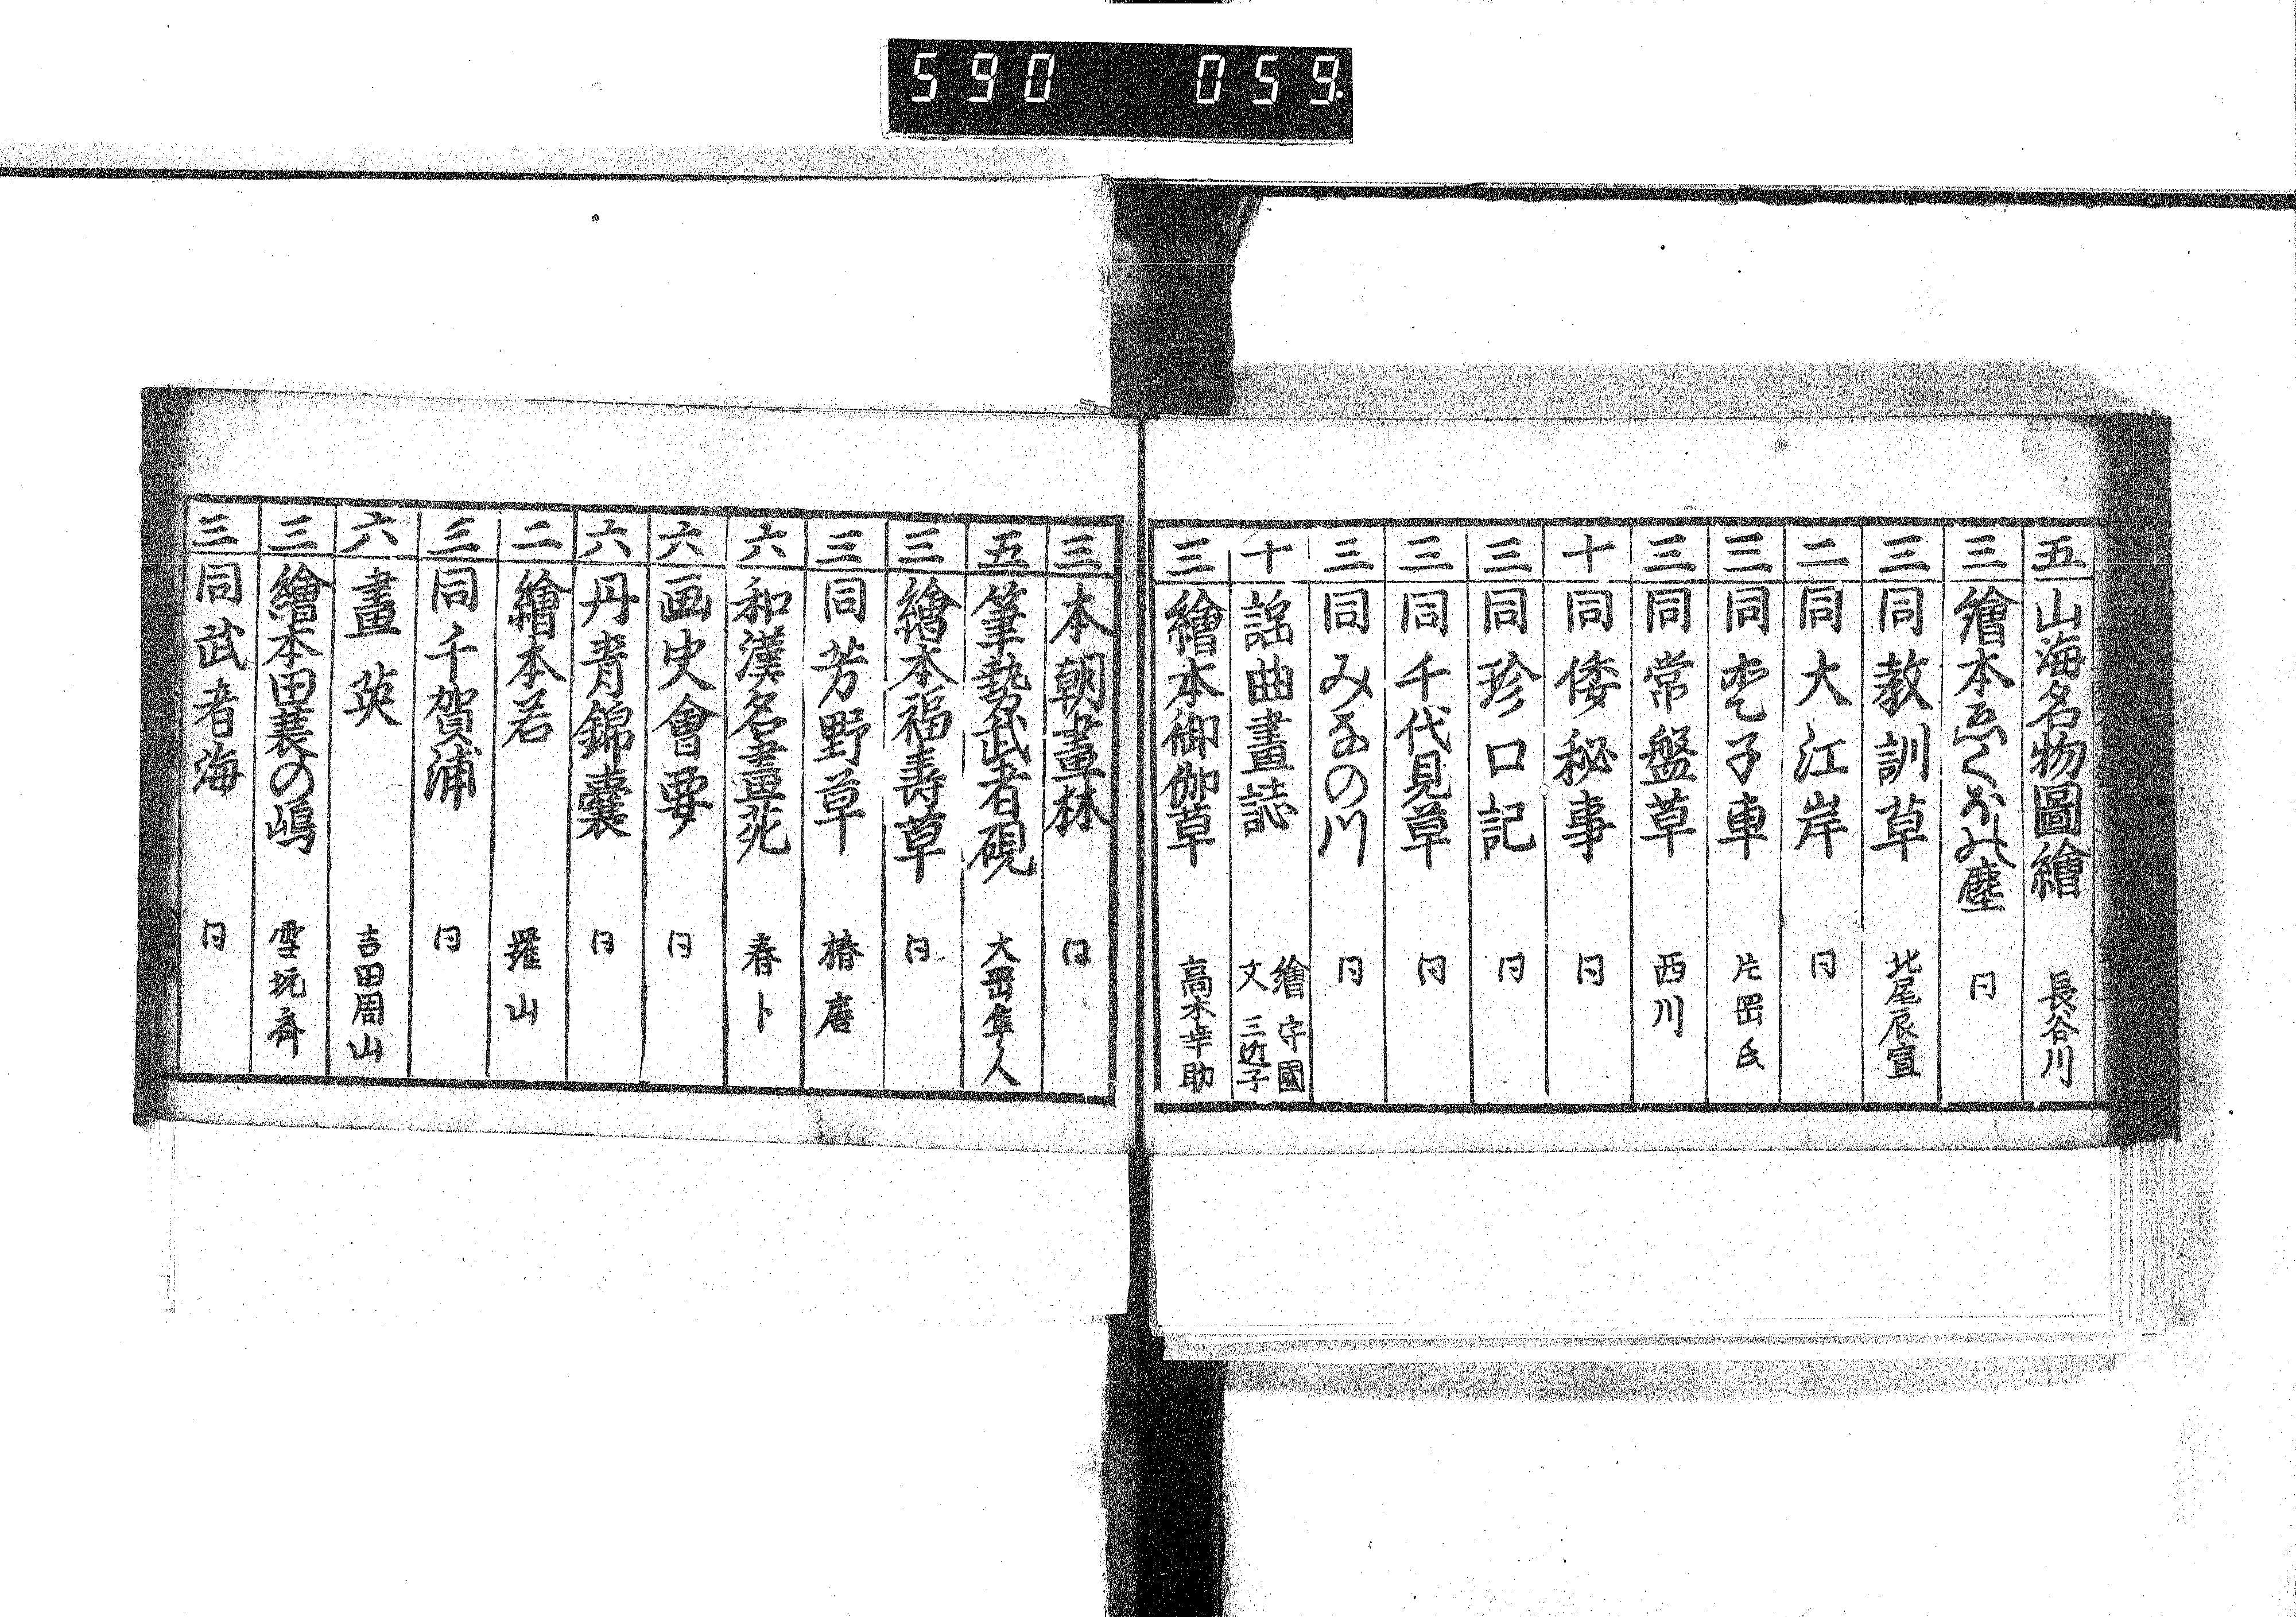 590 059.
五 山海名物圖繪 長谷川
三 繪本ゑくぼみ塵 仝
三 同教訓草 北尾辰宣
二 同大江岸 仝
三 同子車 片岡氏
三 同常盤草 西川
十 同倭秘事 仝
三 同珍口記 仝
三 同千代見草 仝
三 同みなの川 仝
十 謡曲畫誌 繪 守國 文 三近子
三 繪本御伽草 高木幸助
三 本朝畫林 仝
五 筆勢武者硯 大岡隼人
三 繪本福寿草 仝
三 同芳野草 椿磨
六 和漢名畫苑 春卜
六 画史會要 仝
六 丹青錦囊 仝
二 繪本若 羅山
三 同千賀浦 仝
六 畫英 吉田周山
三 繪本田蓑の嶋 雪坑斎
三 同武者海 仝